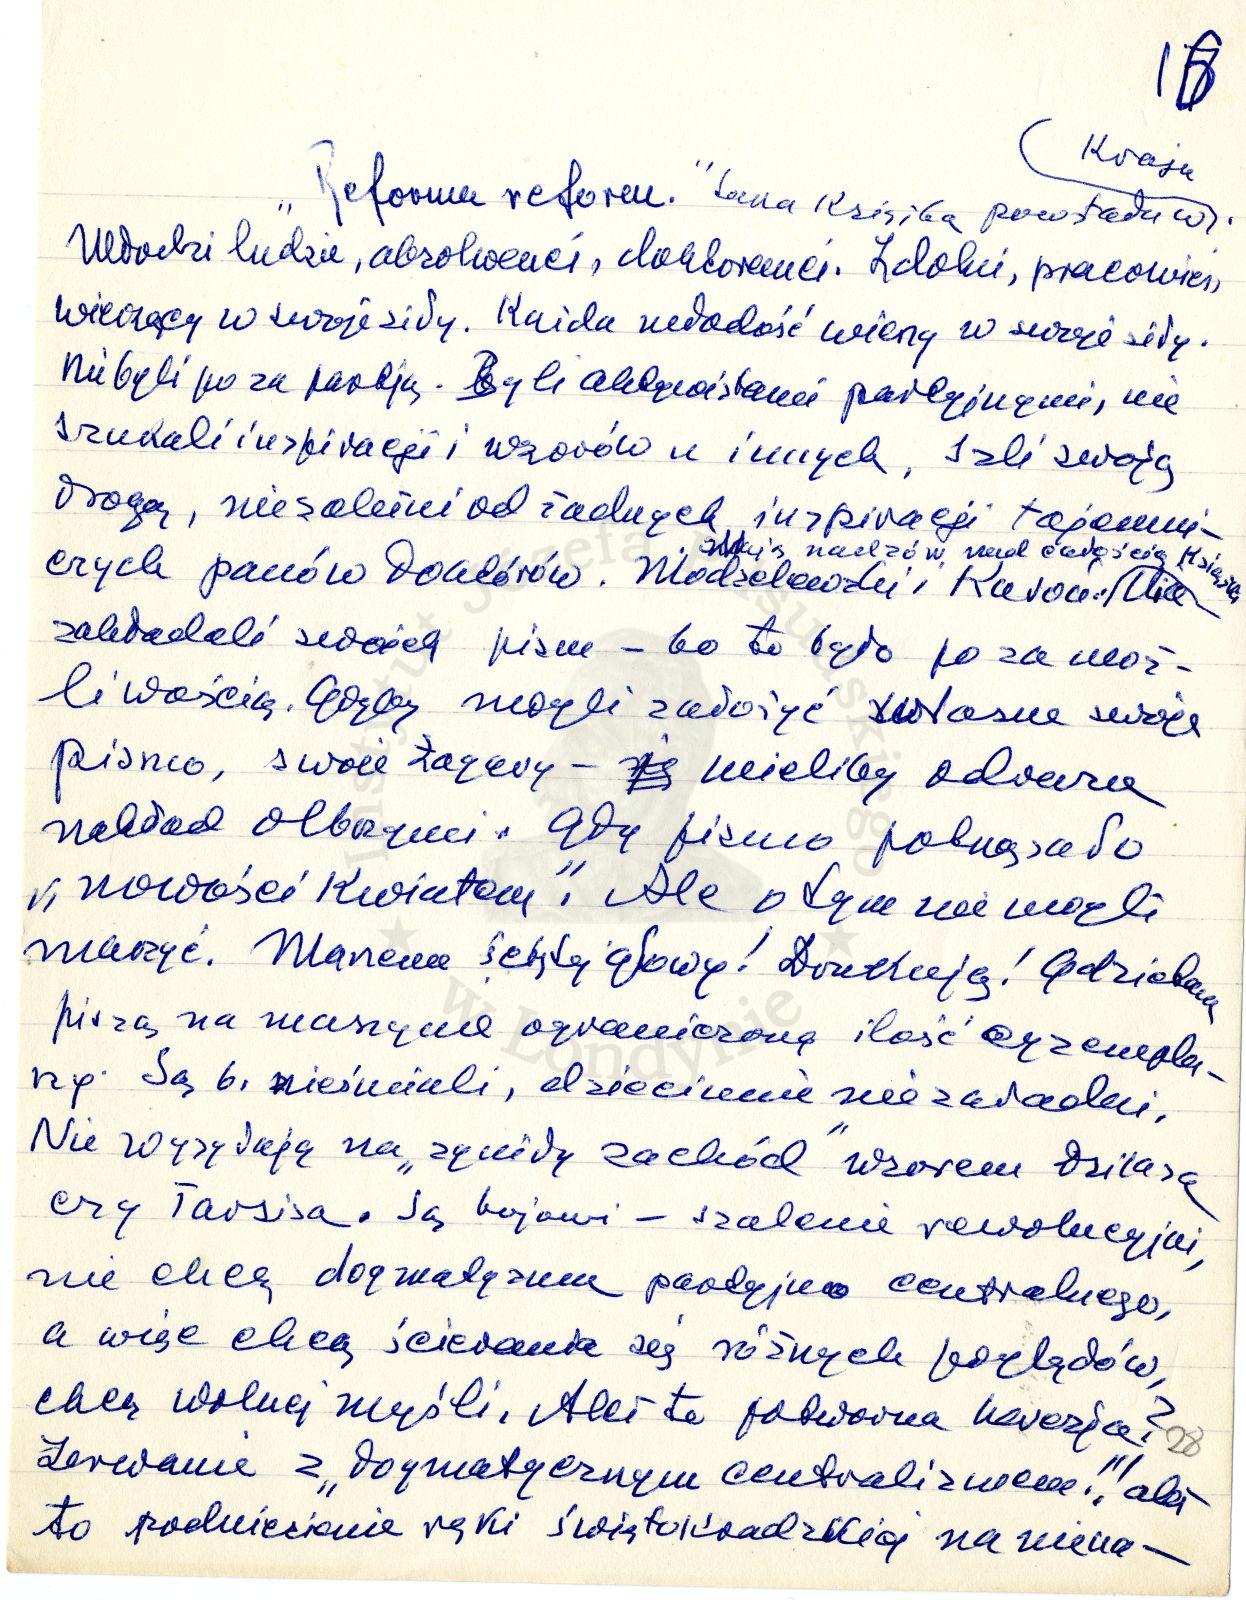 16
Kraju
„Reforma reform." Sama Książka powstała w
Młodzi ludzie, absolwenci, doktoranci. Zdolni, pracowici,
wierzący w swoje siły. Każda młodość wierzy w swoje siły.
Nie byli poza partją. Byli aktywistami partyjnymi, nie
szukali inspiracji i wzorów u innych, szli swoją
drogą, niezależni od żadnych inspiracji tajemni-
czych panów doktorów. Modzelewski i Kuroń. Nie
mają nadzór nad całością Książki
zakładali swoich pism – bo to było poza moż-
liwością. Gdyby mogli założyć własne swoje
pismo, swoje Żagary – mieliby odrazu
nakład olbrzymi. Gdy pismo pokazało
„nowości Kwiatom". Ale o tym nie mogli
marzyć. Marzenie ściętej głowy! Drukują! Gdzie tam
piszą na maszynie ograniczoną ilość egzempla-
rzy. Są b. nieśmiali, dziecinnie niezaradni.
Nie wyzydają na „zgniły zachód" wzorem Dżilasa
czy Tarsisa. Są bojowi – szalenie rewolucyjni,
nie chcą dogmatyzmu partyjno centralnego,
a więc chcą ścierania się różnych poglądów,
chcą wolnej myśli. Ależ to potworna herezja?
28
Zerwanie z „dogmatycznym centralizmem"!! ależ
to podniesienie ręki świętokradzkiej na niena-
Instytut Józefa Piłsudskiego
w Londynie